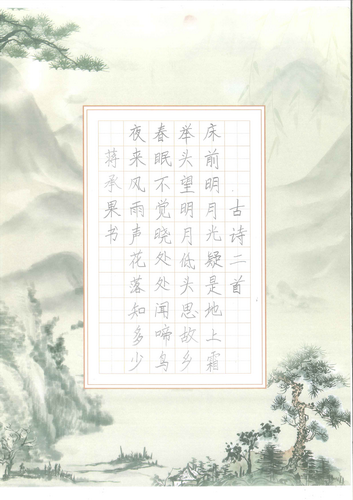 古诗二首
床前明月光疑是地上霜
举头望明月低头思故乡
春眠不觉晓处处闻啼鸟
夜来风雨声花落知多少
蒋承果书